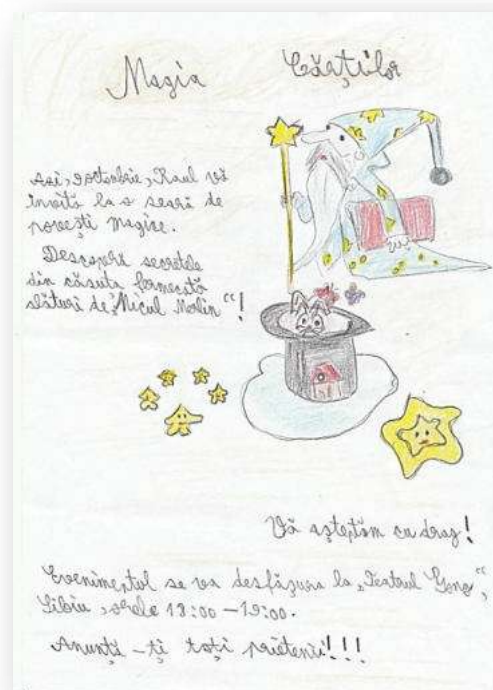 Magia Cărților
Azi, 9 octombrie, Raul vă
invită la o seară de
povești magice.
Descoperă secretele
din căsuța fermecată
alături de „Micul Merlin“!
Vă așteptăm cu drag!
Evenimentul se va desfășura la „Teatrul Gong“,
Sibiu, orele 18:00-19:00.
Anunță-ți toți prietenii!!!